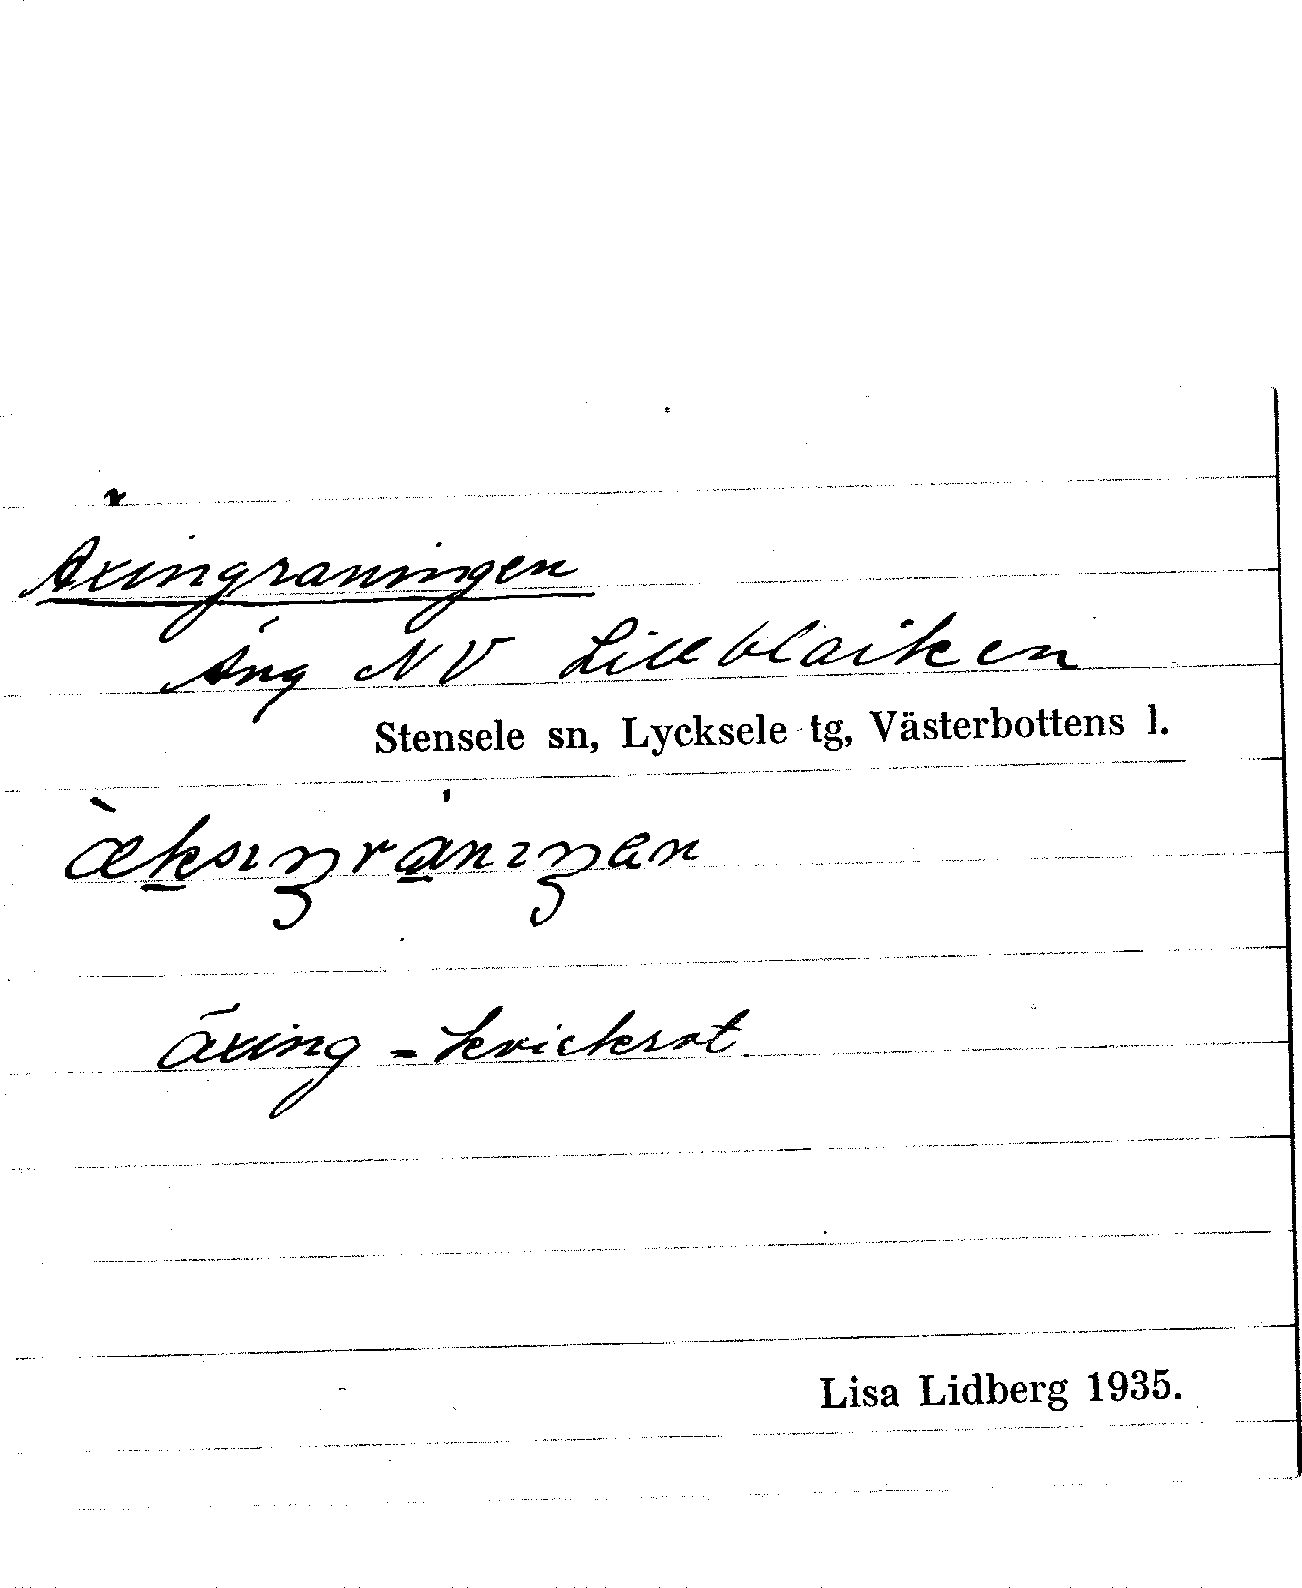 Äxingraningen
Äng NV Lillblaiken
Stensele sn, Lycksele tg, Västerbottens l.
æ̀ksıŋránıŋen
äxing - kvickrot
Lisa Lidberg 1935.